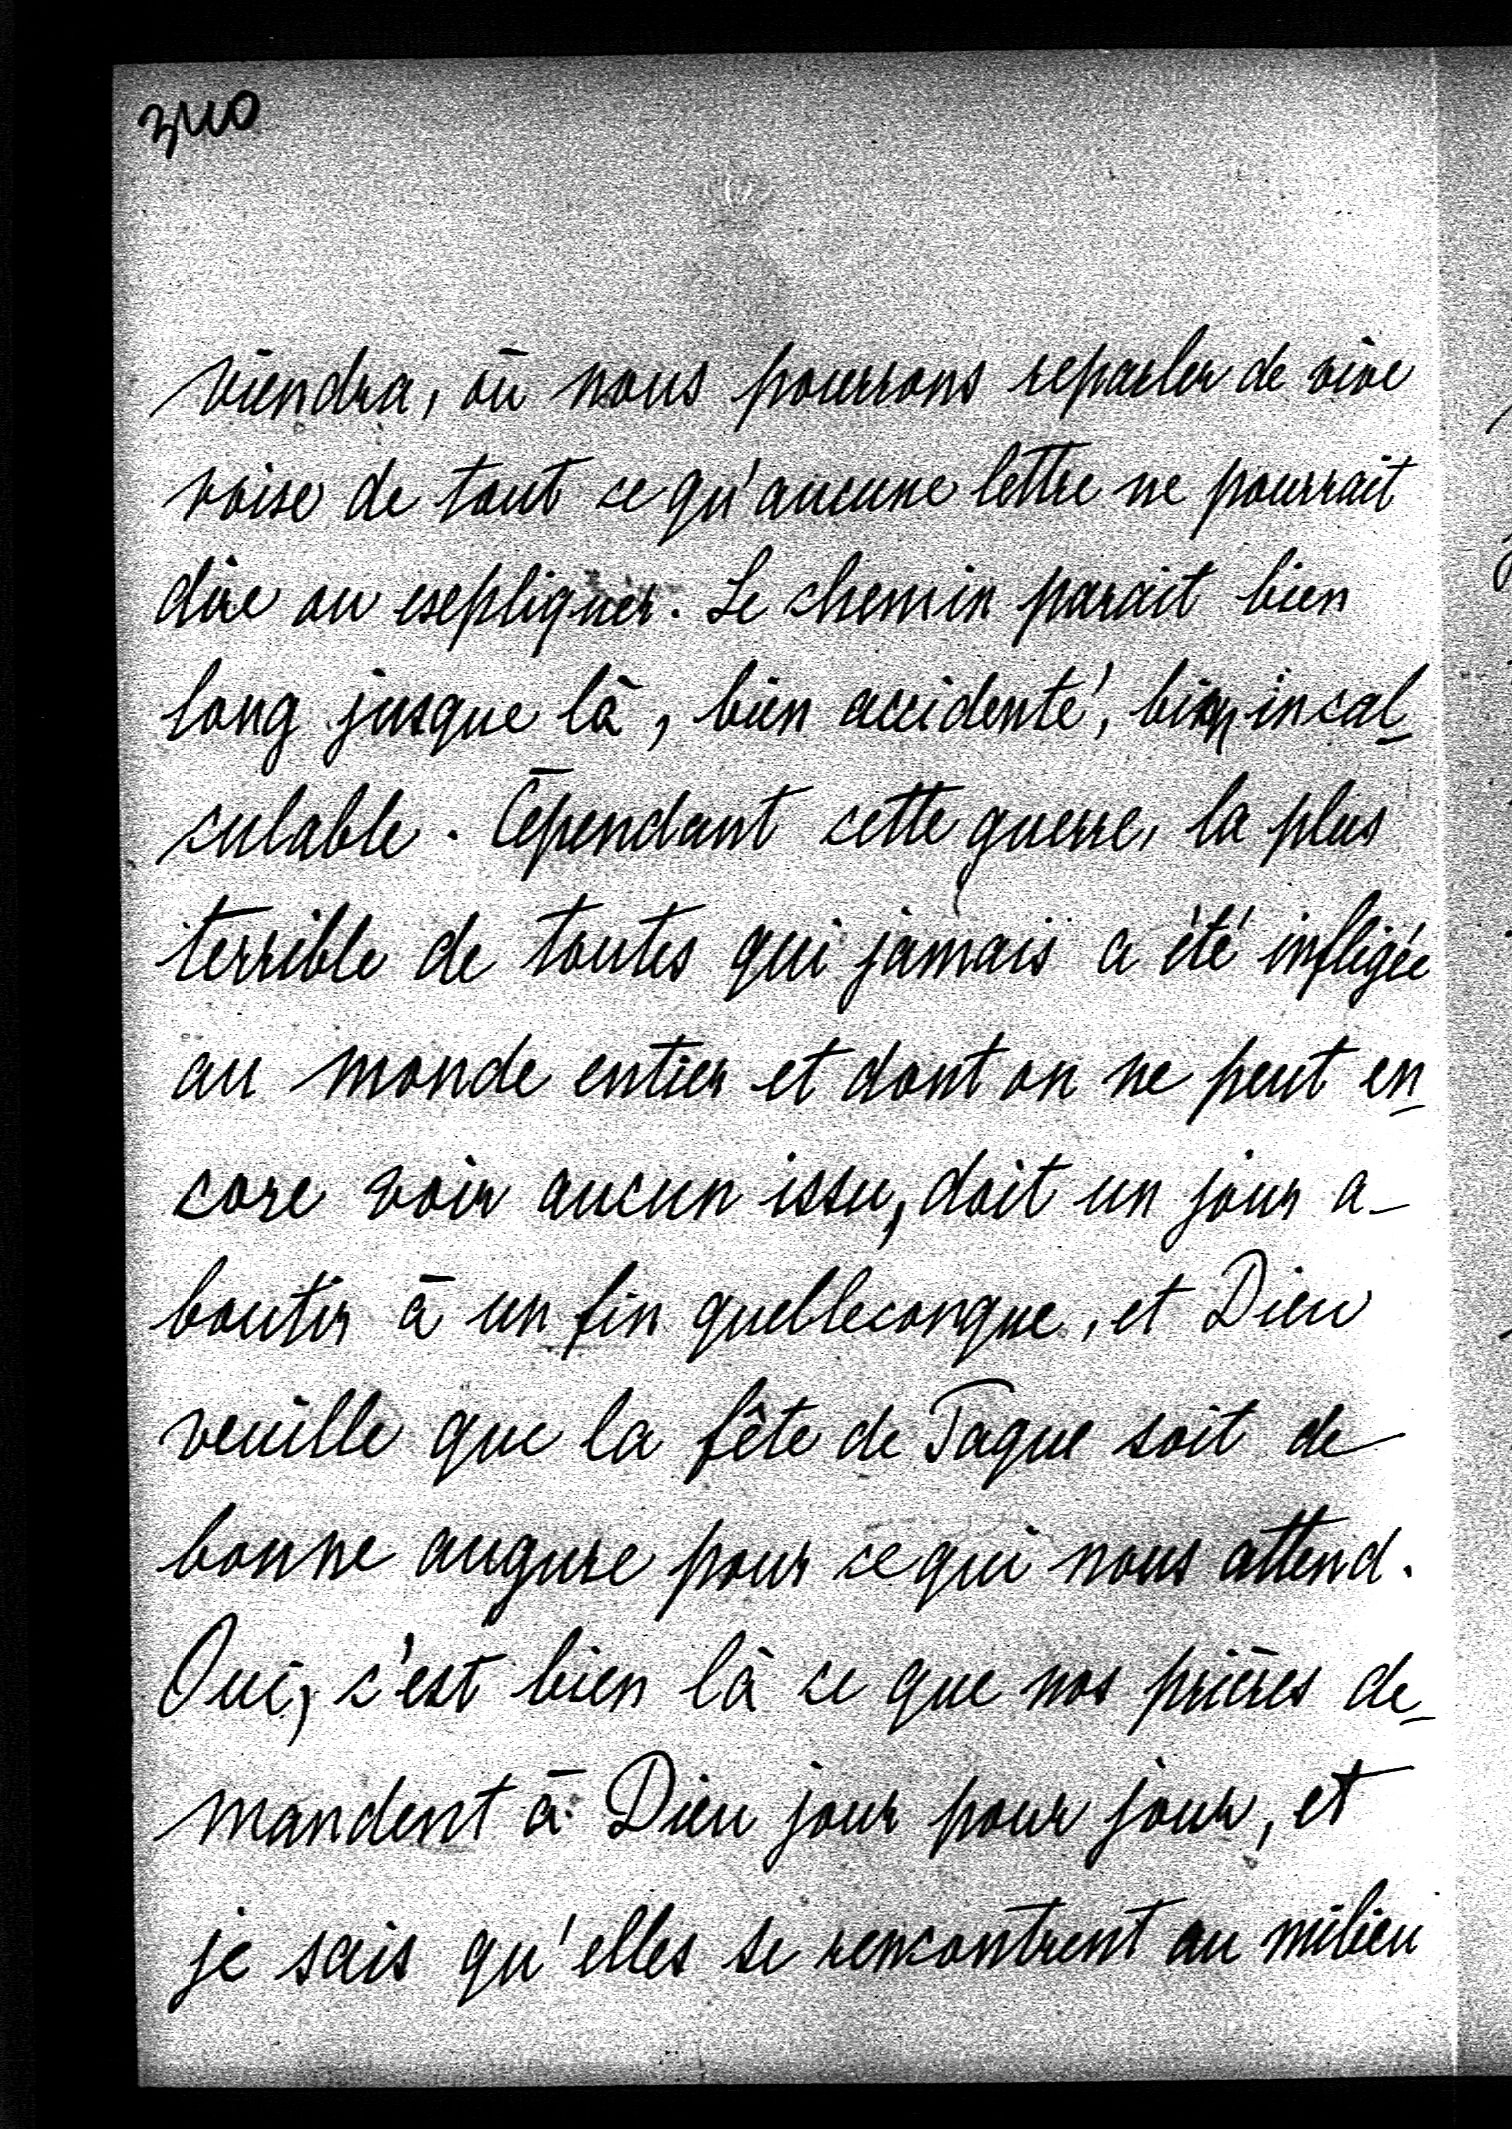 viendra, où nous pourrons reparler de vive
voise de tout ce qu'aucune lettre ne pourrait
dire ou esepliquer. Le chemin parait bien
long jusque là, bien accidenté, bien incal_
culable. Cependant cette guerre, la plus
terrible de toutes qui jamais a été infligée
au monde entier et dont on ne peut en_
core voir aucun issu, doit un jour a_
boutir à un fin quelleconque, et Dieu
veuille que la fête de Paque soit de
bonne augure pour ce qui nous attend.
Oui, c'est bien là ce que nos prières de_
mandent à Dieu jour pour jour, et
je sais qu'elles se rencontrent au milieu